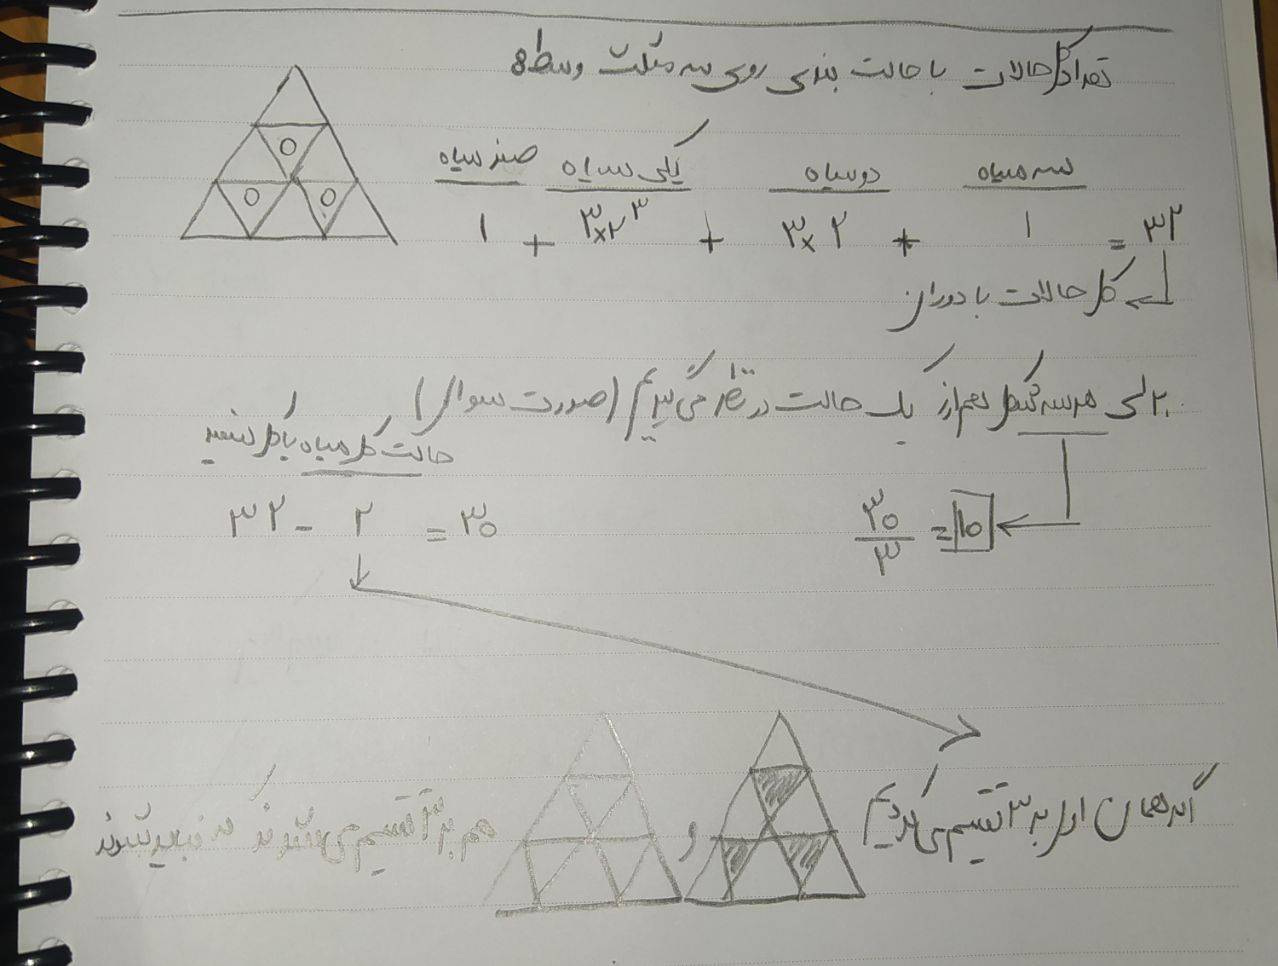 تعداد کل حالات با حالت بندی روی سه مثلث وسط:
سه سیاه دو سیاه یکی سیاه صفر سیاه
۱ + ۳×۲^۳ + ۳×۲ + ۱ = ۳۲
کل حالات با دوران
ولی هر سه شکل هم‌ارز یک حالت در نظر می‌گیریم (صورت سوال)
حالت کل سیاه یا کل سفید
۳۲ - ۲ = ۳۰
۳۰/۳ = ۱۰
اگر همان اول بر ۳ تقسیم می‌کردیم و هم بر ۳ تقسیم می‌شوند که نباید شوند